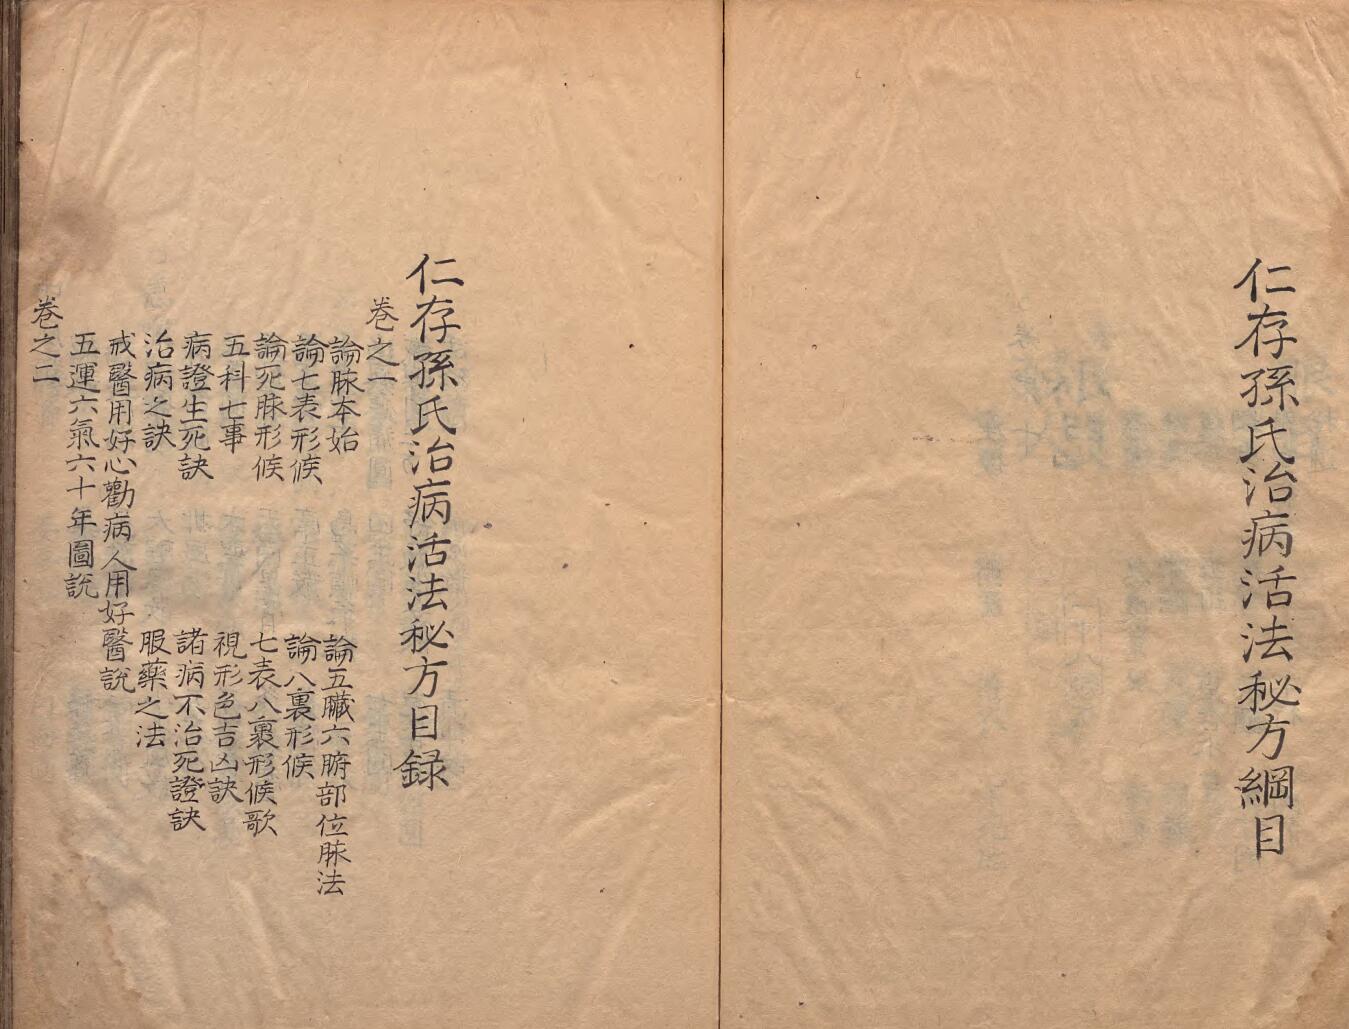 仁存孫氏治病活法秘方綱目
仁存孫氏治病活法秘方目録
卷之一
論脉本始
論五臟六腑部位脉法
論七表形候
論八裏形候
論死脉形候
七表八裏形候歌
五科七事
視形色吉凶訣
病證生死訣
諸病不治死證訣
治病之訣
服藥之法
戒醫用好心勸病人用好醫說
五運六氣六十年圖說
卷之二